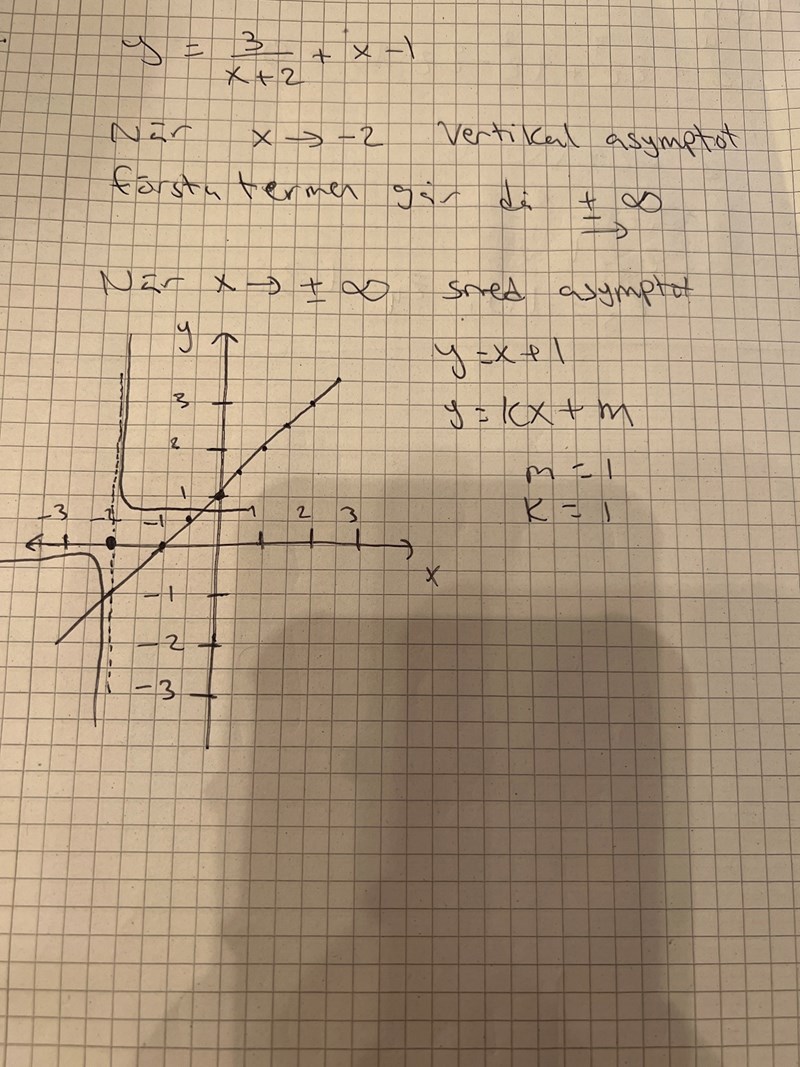 y = 3/(x+2) + x - 1
När x → -2 Vertikal asymptot
första termen går då ± ∞
→
När x → ± ∞ sned asymptot
y = x + 1
y = kx + m
m = 1
k = 1
y
3
2
1
-3 -2 -1 1 2 3
x
-1
-2
-3